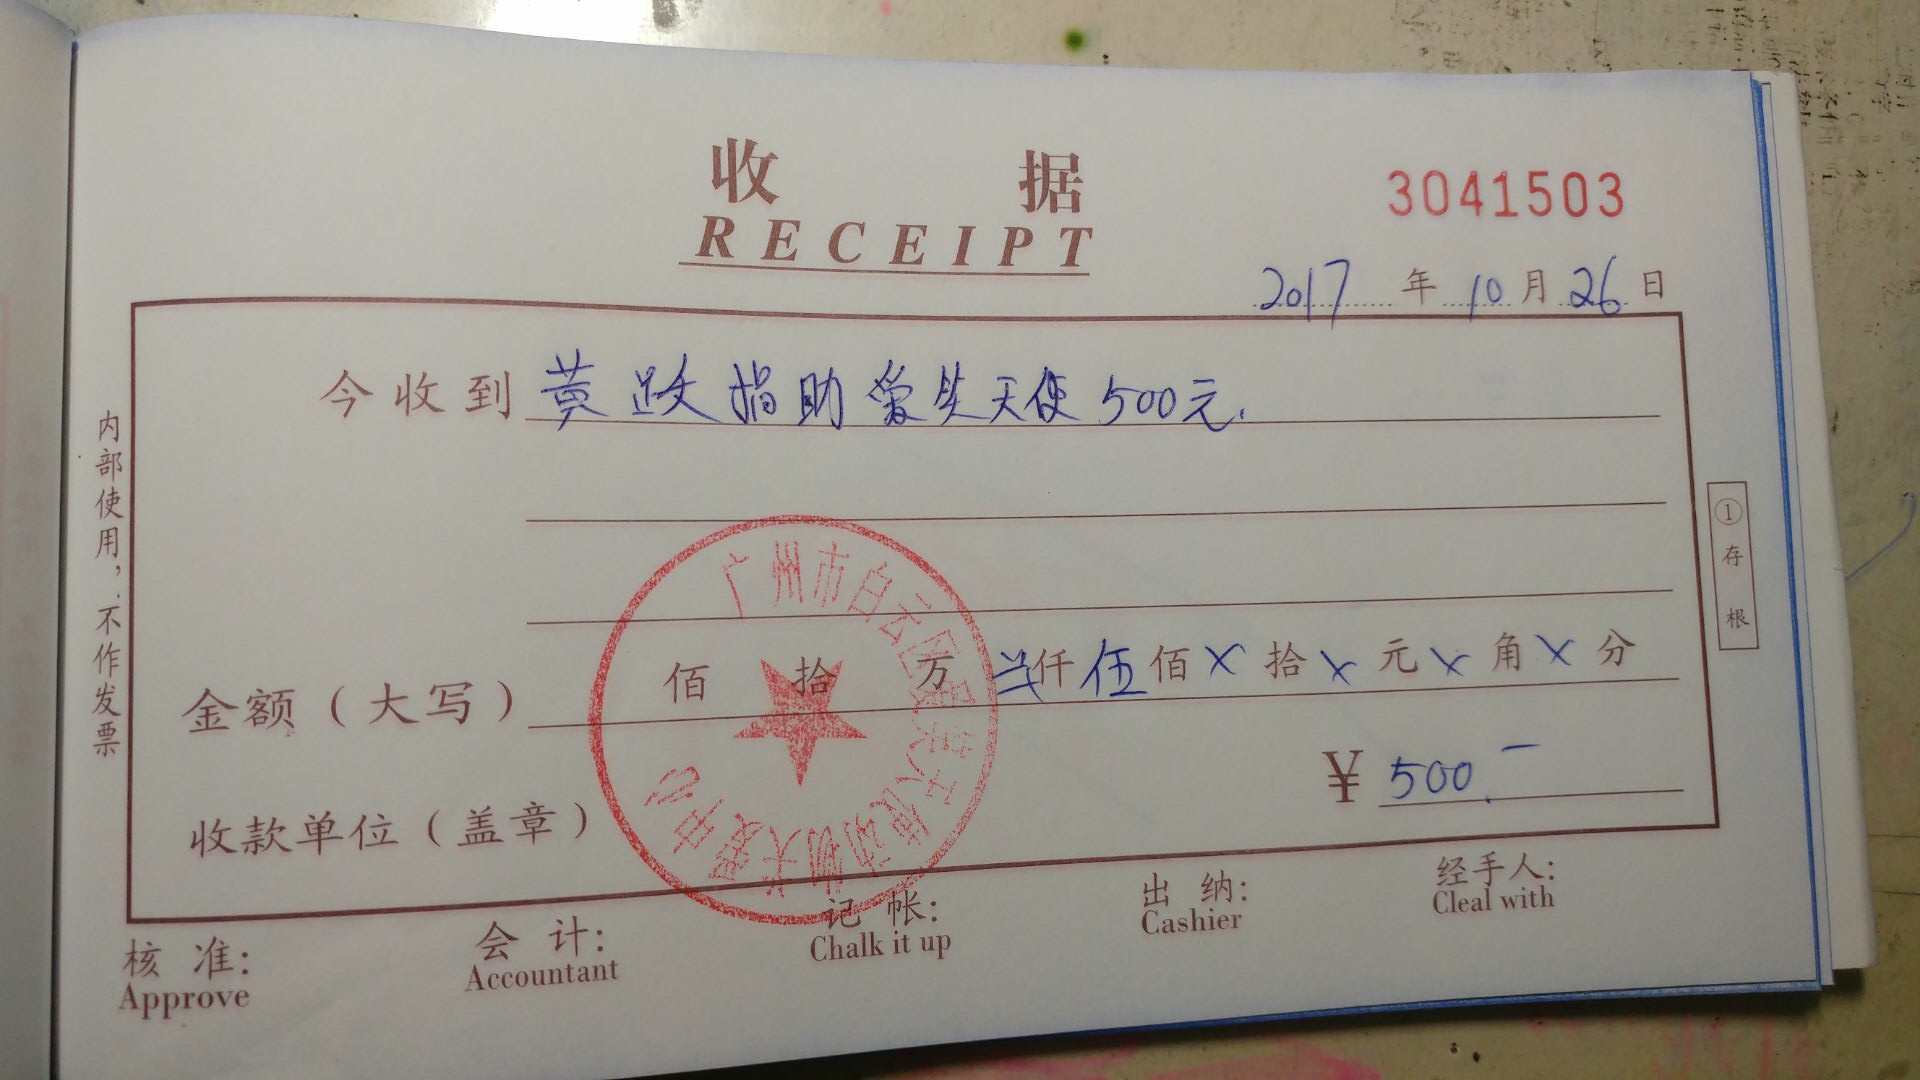 收 据
RECEIPT
3041503
2017 年 10 月 26 日
今收到 黄跃捐助爱笑天使500元.
金额（大写） 佰 拾 万 仟 伍 佰 X 拾 X 元 X 角 X 分
¥ 500.—
收款单位（盖章）
广州市白云区爱笑天使动物关爱中心
内部使用，不作发票
① 存根
核 准:
Approve
会 计:
Accountant
记 帐:
Chalk it up
出 纳:
Cashier
经手人:
Cleal with